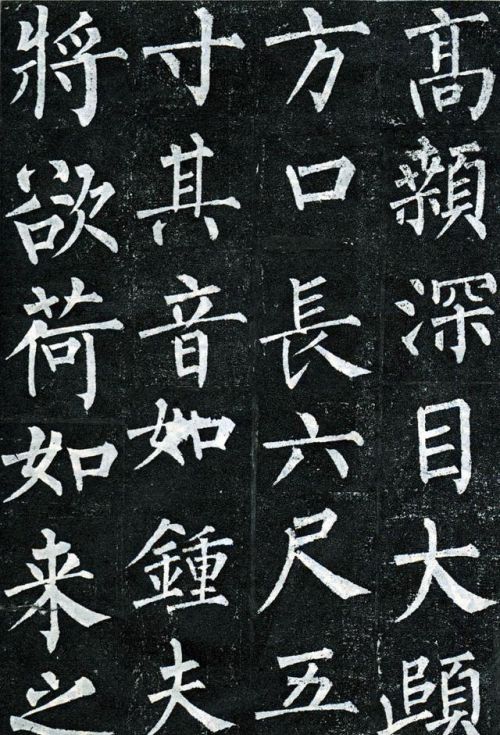 高顙深目大頤
方口長六尺五
寸其音如鍾夫
將欲荷如来之